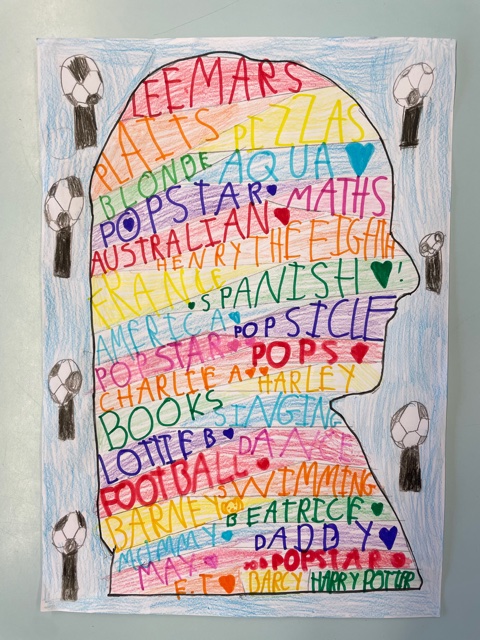 LEEMARS
PLAITS PIZZAS
BLONDE AQUA
POPSTAR MATHS
AUSTRALIAN
HENRY THE EIGHTH
FRANCE SPANISH !
AMERICA POPSICLE
POPSTAR POPS
CHARLEE A HARLEY
BOOKS SINGING
LOTTIE B DANCE
FOOTBALL SWIMMING
BARNEY BEATRICE
MUMMY DADDY
MAY POPSTAR
E.T DARCY HARRY POTTER